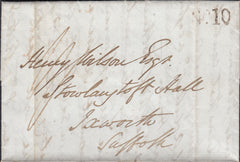 10
Henry Wilson Esqr.
Stowlangtoft Hall
Ixworth
Suffolk